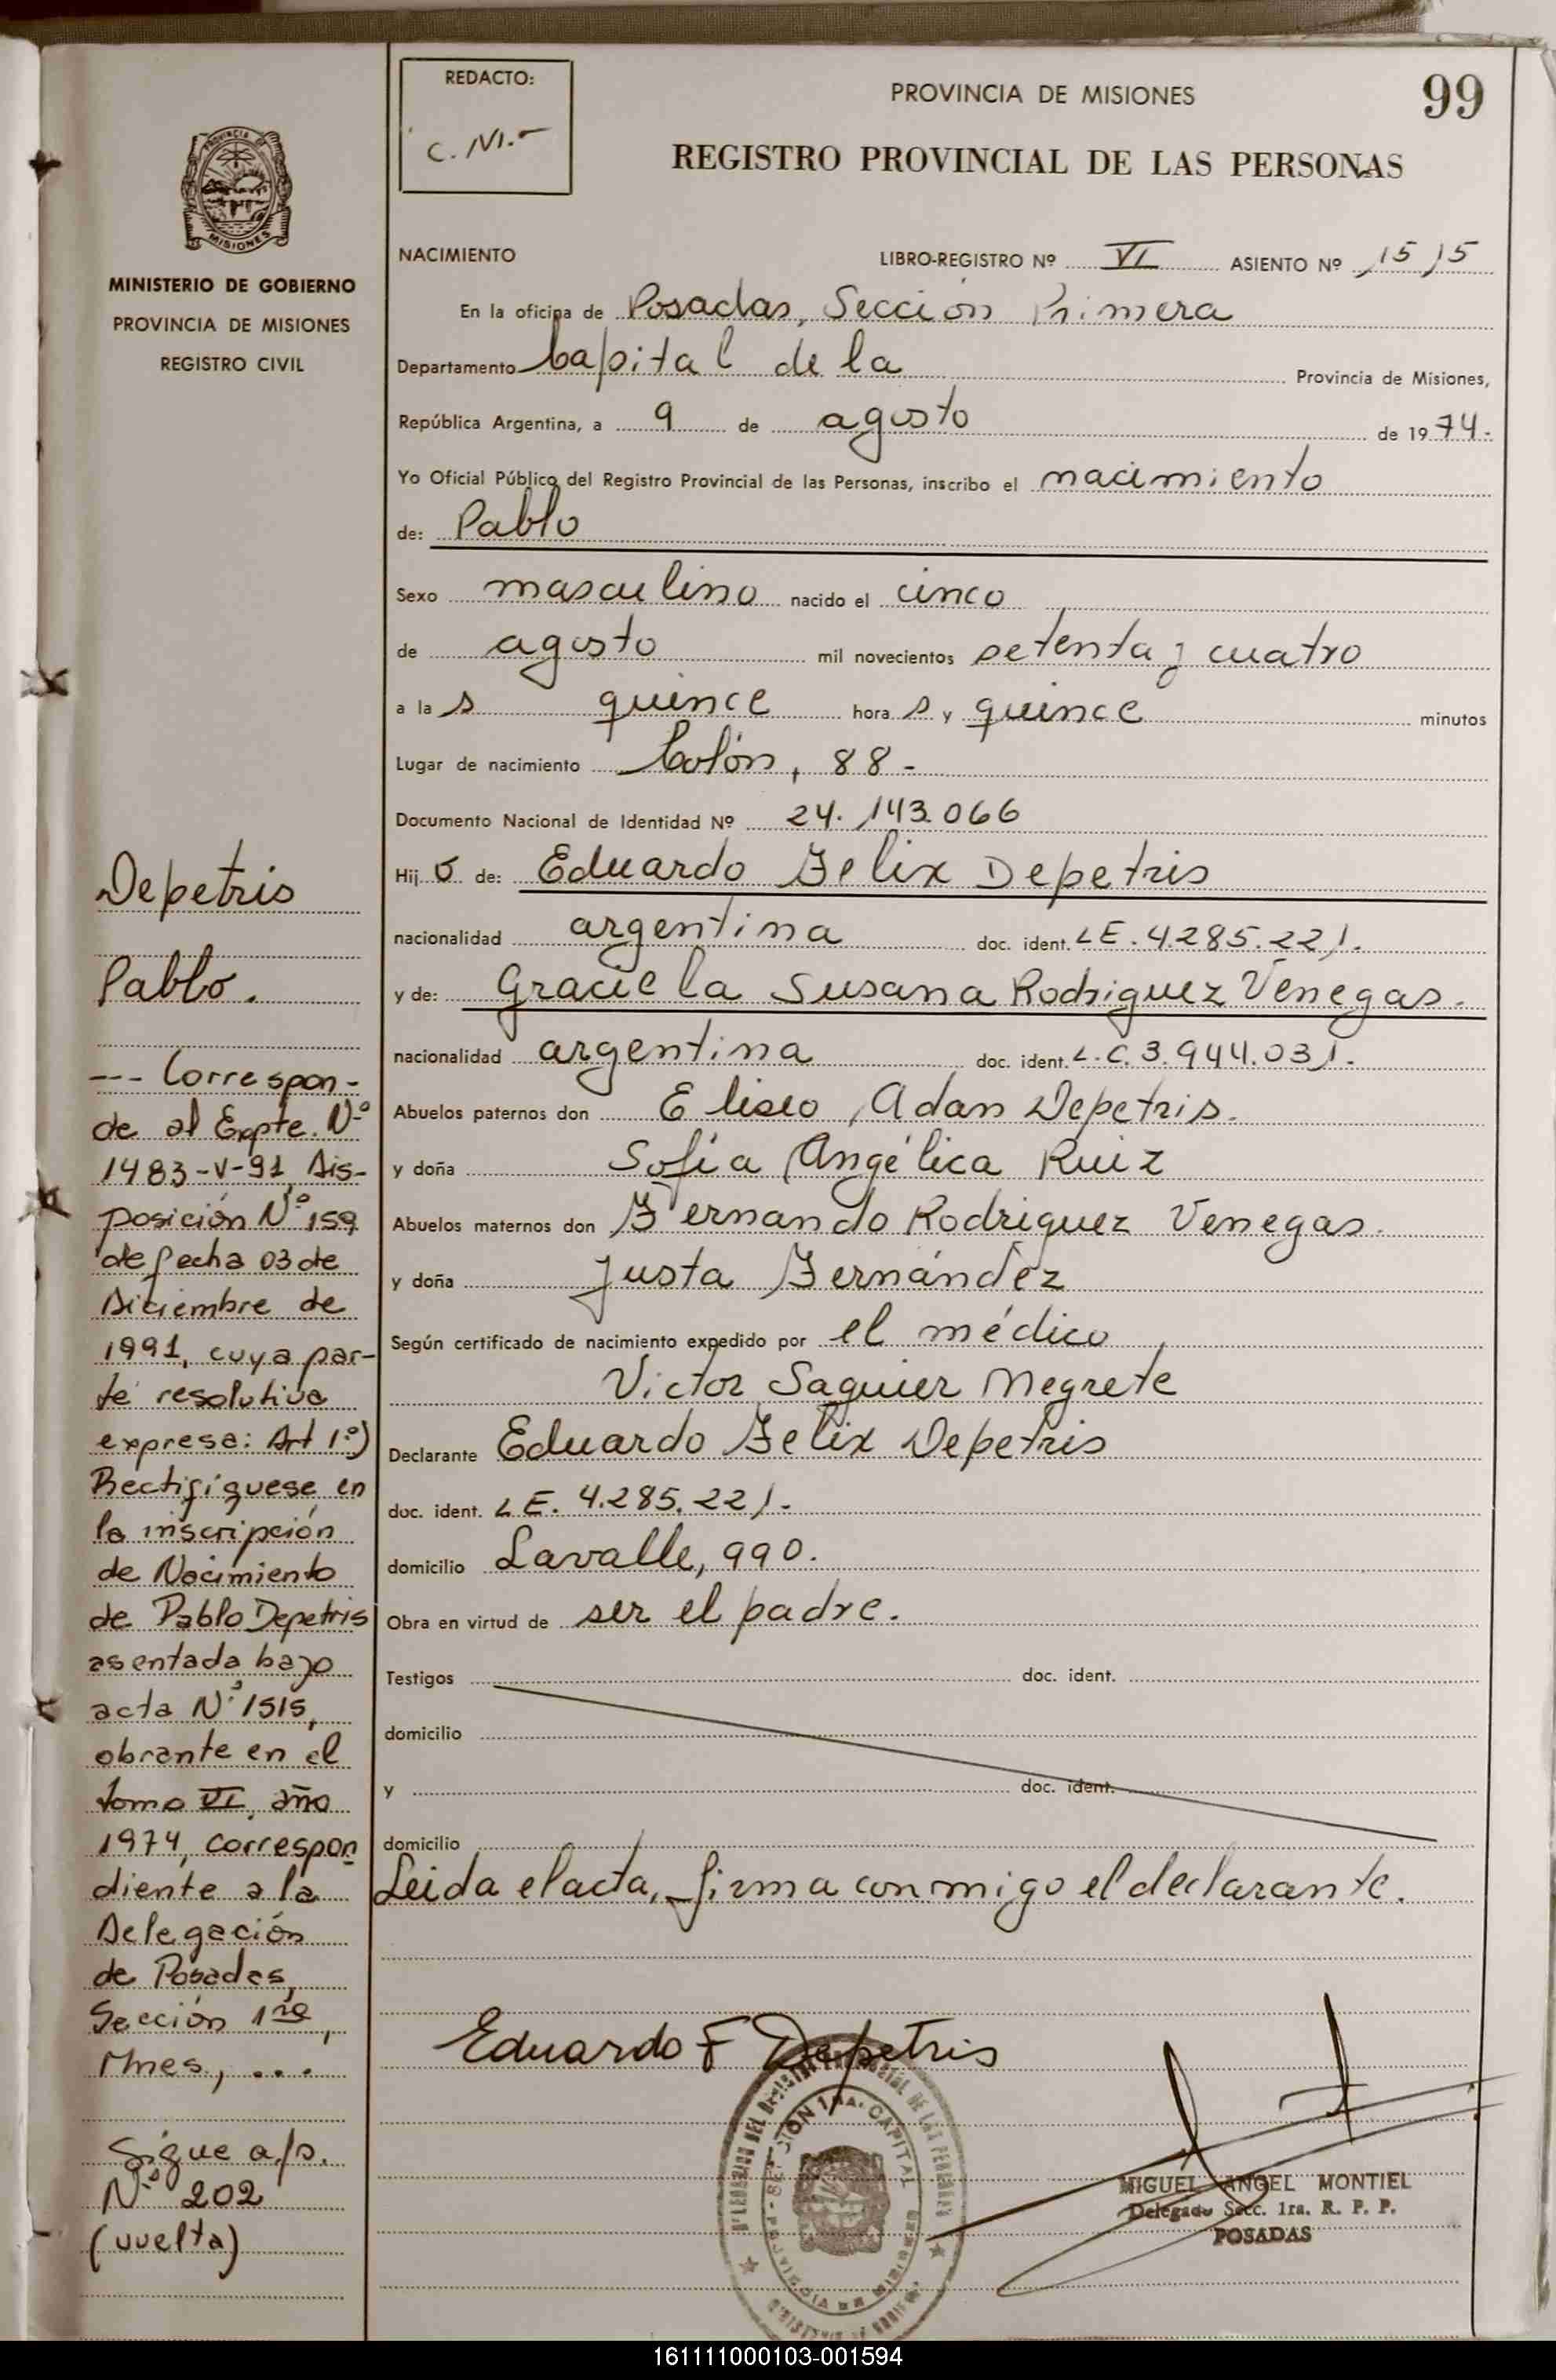 REDACTO:
C. M.-
PROVINCIA DE MISIONES
99
REGISTRO PROVINCIAL DE LAS PERSONAS
PROVINCIA DE
MISIONES
MINISTERIO DE GOBIERNO
PROVINCIA DE MISIONES
REGISTRO CIVIL
NACIMIENTO
LIBRO-REGISTRO Nº VI ASIENTO Nº 1515
En la oficina de Posadas, Sección Primera
Departamento Capital de la Provincia de Misiones,
República Argentina, a 9 de agosto de 1974.-
Yo Oficial Público del Registro Provincial de las Personas, inscribo el nacimiento
de: Pablo
Sexo masculino nacido el cinco
de agosto mil novecientos setenta y cuatro
a las quince horas y quince minutos
Lugar de nacimiento Colón, 88-
Documento Nacional de Identidad Nº 24.143.066
Hijo de: Eduardo Felix Depetris
nacionalidad argentina doc. ident. LE. 4.285.221.
y de: Graciela Susana Rodriguez Venegas.
nacionalidad argentina doc. ident. L.C. 3.944.031.
Abuelos paternos don Eliseo Adan Depetris.
y doña Sofía Angélica Ruiz
Abuelos maternos don Fernando Rodriguez Venegas.
y doña Justa Fernández
Según certificado de nacimiento expedido por el médico
Victor Saguier Negrete
Declarante Eduardo Felix Depetris
doc. ident. LE. 4.285.221.
domicilio Lavalle, 990.
Obra en virtud de ser el padre.
Testigos doc. ident.
domicilio
y doc. ident.
domicilio
Leida el acta, firma conmigo el declarante.
Eduardo F Depetris
SECCION 1RA. CAPITAL
MIGUEL ANGEL MONTIEL
Delegado Secc. 1ra. R. P. P.
POSADAS
Depetris
Pablo.
--- Correspon-
de al Expte. Nº
1483-V-91, Dis-
posición Nº 159
de fecha 03 de
Diciembre de
1991, cuya par-
te resolutiva
expresa: Art 1º)
Rectifíquese en
la inscripción
de Nacimiento
de Pablo Depetris
asentada bajo
acta Nº 1515,
obrante en el
tomo VI, año
1974, correspon
diente a la
Delegación
de Posadas,
Sección 1ra,
Mnes., ...
Sigue a/s.
Nº 202
(vuelta)
161111000103-001594